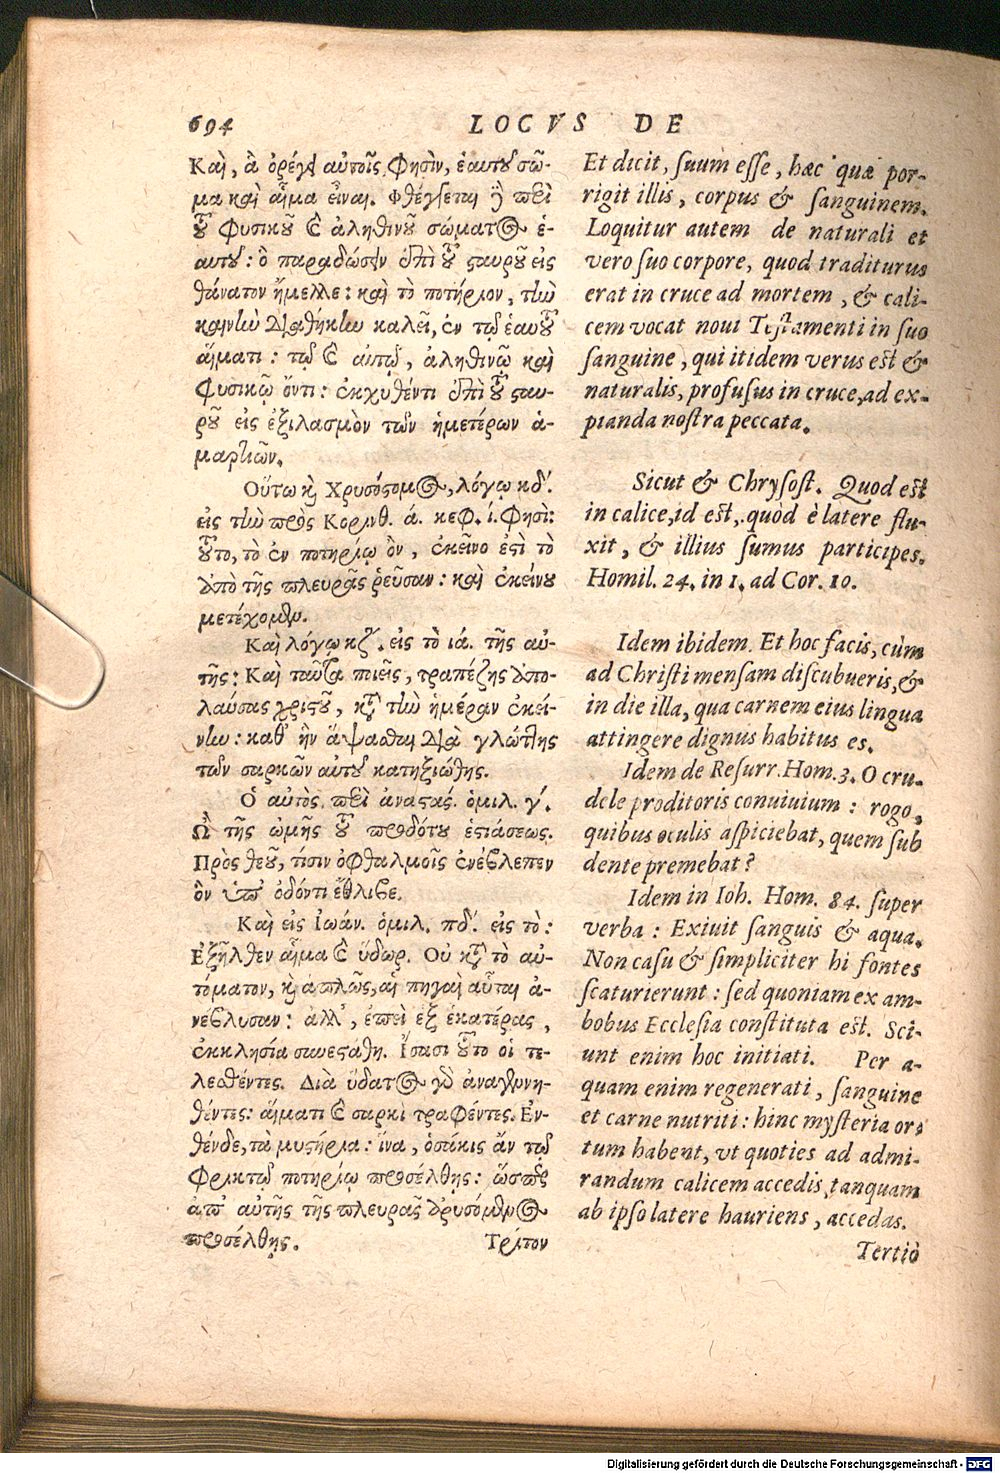 694 LOCVS DE
Καὶ, ἃ ὀρέγει αὐτοῖς, φησὶν, ἑαυτοῦ σῶ-
μα καὶ αἷμα εἶναι. Φθέγγεται γὸ περὶ
τοῦ φυσικοῦ καὶ ἀληθινοῦ σώματος ἑ-
αυτοῦ: ὃ παραδώσειν ἐπὶ τοῦ σταυροῦ εἰς
θάνατον ἤμελλε: καὶ τὸ ποτήριον, τὴν
καινὴν Διαθήκην καλεῖ, ἐν τῷ ἑαυτοῦ
αἵματι: τῷ καὶ αὐτῷ, ἀληθινῷ καὶ
φυσικῷ ὄντι: ἐκχυθέντι ἐπὶ τοῦ σταυ-
ροῦ εἰς ἐξιλασμὸν τῶν ἡμετέρων ἁ-
μαρτιῶν.
Οὕτω καὶ Χρυσόστομος, λόγῳ κδ́.
εἰς τὴν πρὸς Κορινθ. ά. κεφ. ί. φησὶ:
τοῦτο, τὸ ἐν ποτηρίῳ ὂν, ἐκεῖνο ἐστὶ τὸ
ἀπὸ τῆς πλευρᾶς ῥεῦσαν: καὶ ἐκείνου
μετέχομεν.
Καὶ λόγῳ κζ́. εἰς τὸ ιά. τῆς αὐ-
τῆς: Καὶ ταῦτα ποιεῖς, τραπέζης ἀπο-
λαύσας χριστοῦ, κατὰ τὴν ἡμέραν ἐκεί-
νην: καθ' ἣν ἅψασθαι Διὰ γλώττης
τῶν σαρκῶν αὐτοῦ κατηξιώθης.
Ὁ αὐτὸς, περὶ ἀναστάς. ὁμιλ. γ́.
Ὢ τῆς ὠμῆς τοῦ προδότου ἑστιάσεως.
Πρὸς θεοῦ, τίσιν ὀφθαλμοῖς ἐνέβλεπεν
ὃν ὑπ' ὀδόντι ἔθλιβε.
Καὶ εἰς Ἰωάν. ὁμιλ. πδ́. εἰς τὸ:
Ἐξῆλθεν αἷμα καὶ ὕδωρ. Οὐ κατὰ τὸ αὐ-
τόματον, καὶ ἁπλῶς, αἱ πηγαὶ αὗται ἀ-
νέβλυσαν: ἀλλ', ἐπεὶ ἐξ ἑκατέρας,
ἐκκλησία συνεστάθη. Ἴσασι τοῦτο οἱ τε-
λεσθέντες. Διὰ ὕδατος γὸ ἀναγεννη-
θέντες: αἵματι καὶ σαρκὶ τραφέντες. Ἐν-
θένδε, τὰ μυστήρια: ἵνα, ὁσάκις ἂν τῷ
φρικτῷ ποτηρίῳ προσέλθῃς: ὥσπερ
ἀπ' αὐτῆς τῆς πλευρᾶς ἀρυσόμενος
προσέλθῃς. Τρίτον
Et dicit, suum esse, hæc quæ por-
rigit illis, corpus & sanguinem.
Loquitur autem de naturali et
vero suo corpore, quod traditurus
erat in cruce ad mortem, & cali-
cem vocat noui Testamenti in suo
sanguine, qui itidem verus est &
naturalis, profusus in cruce, ad ex-
pianda nostra peccata.
Sicut & Chrysost. Quod est
in calice, id est, quòd è latere flu-
xit, & illius sumus participes.
Homil. 24. in 1. ad Cor. 10.
Idem ibidem. Et hoc facis, cùm
ad Christi mensam discubueris, &
in die illa, qua carnem eius lingua
attingere dignus habitus es.
Idem de Resurr. Hom. 3. O cru-
dele proditoris conuiuium: rogo,
quibus oculis aspiciebat, quem sub
dente premebat?
Idem in Ioh. Hom. 84. super
verba: Exiuit sanguis & aqua.
Non casu & simpliciter hi fontes
scaturierunt: sed quoniam ex am-
bobus Ecclesia constituta est. Sci-
unt enim hoc initiati. Per a-
quam enim regenerati, sanguine
et carne nutriti: hinc mysteria or-
tum habent, vt quoties ad admi-
randum calicem accedis, tanquam
ab ipso latere hauriens, accedas.
Tertiò
Digitalisierung gefördert durch die Deutsche Forschungsgemeinschaft - DFG